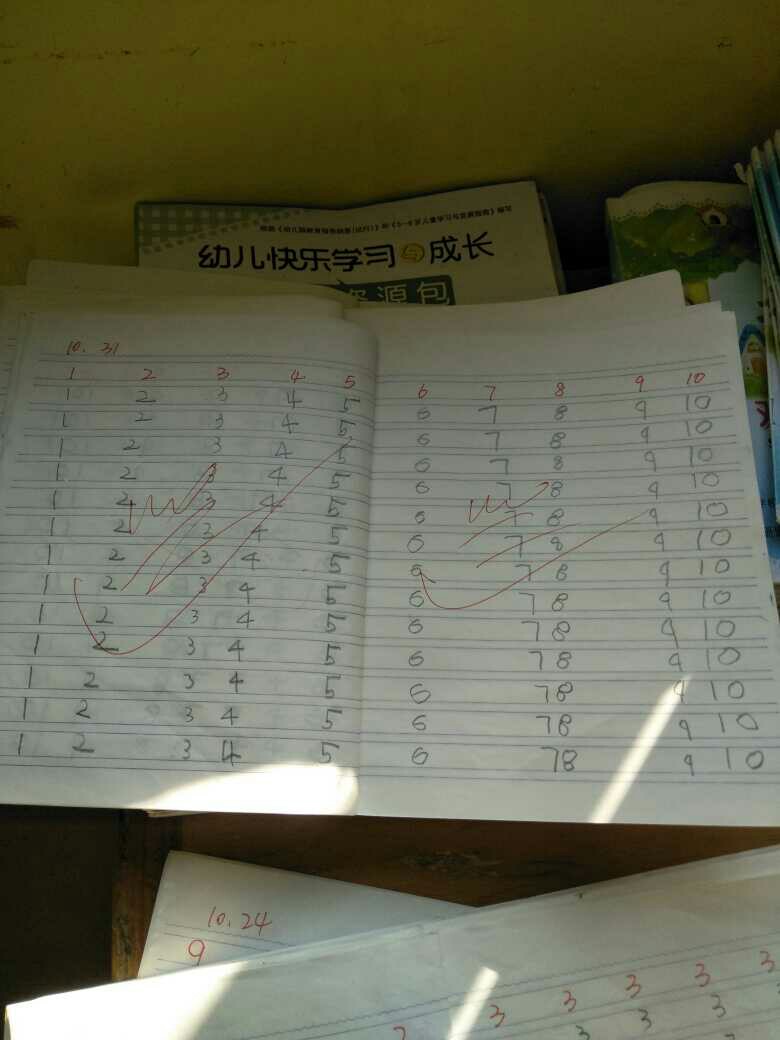 根据《幼儿园教育指导纲要(试行)》和《3-6岁儿童学习与发展指南》编写
幼儿快乐学习与成长
资源包
10. 31
1 2 3 4 5
1 2 3 4 5
1 2 3 4 5
1 2 3 4 5
1 2 3 4 5
1 2 3 4 5
1 2 3 4 5
1 2 3 4 5
1 2 3 4 5
1 2 3 4 5
1 2 3 4 5
1 2 3 4 5
1 2 3 4 5
1 2 3 4 5
6 7 8 9 10
6 7 8 9 10
6 7 8 9 10
6 7 8 9 10
6 7 8 9 10
6 7 8 9 10
6 7 8 9 10
6 7 8 9 10
6 7 8 9 10
6 7 8 9 10
6 7 8 9 10
6 7 8 9 10
6 7 8 9 10
6 7 8 9 10
10.24
9
3 3 3 3 3
3 3 3 3